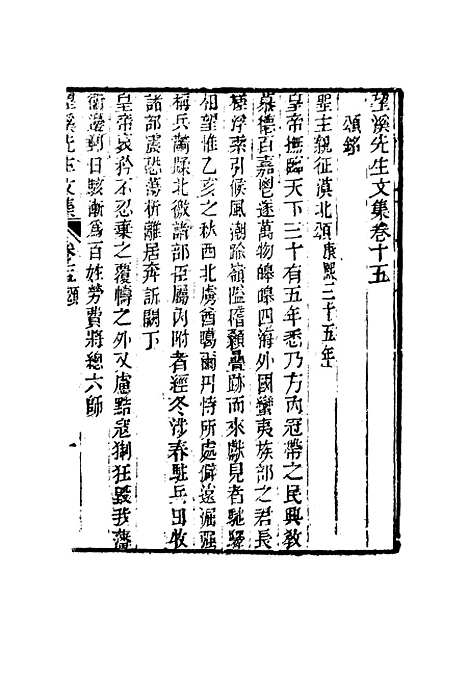 望溪先生文集卷十五
頌銘
聖主親征漠北頌康熙三十五年
皇帝撫臨天下三十有五年悉乃方內冠帶之民興教
慕德百嘉鬯遂萬物皞皞四海外國蠻夷族部之君長
桴浮索引候風潮踰嶺隘稽顙疊跡而來獻見者馳驛
相望惟乙亥之秋西北虜酋噶爾丹恃所處僻遠倔強
稱兵蹂北徼諸部臣屬內附者經冬涉春駐兵田牧
諸部震恐蕩析離居奔訴闕下
皇帝哀矜不忍棄之覆幬之外又慮黠寇猘狂毀我藩
衛邊郵日駭漸為百姓勞費將總六師
望溪先生文集 卷十五 頌 一